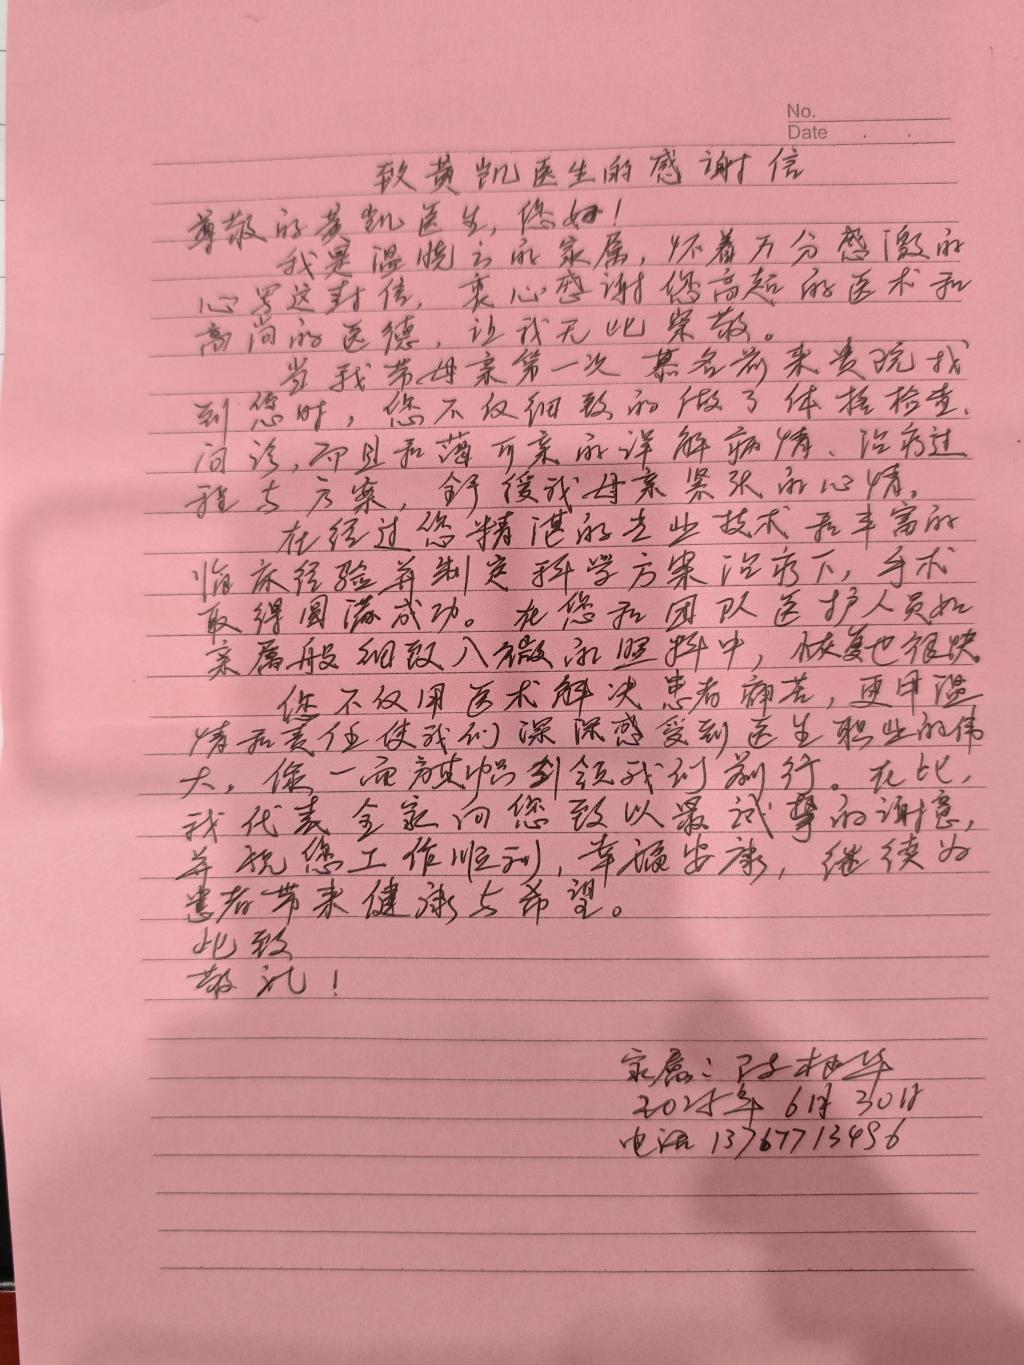 No.
Date . .
致黄凯医生的感谢信
尊敬的黄凯医生,您好!
我是温晓云的家属,怀着万分感激的
心写这封信,衷心感谢您高超的医术和
高尚的医德,让我无比崇敬。
当我带母亲第一次慕名前来贵院找
到您时,您不仅细致的做了体括检查、
问诊,而且和蔼可亲的详解病情、治疗过
程与方案,舒缓我母亲紧张的心情。
在经过您精湛的专业技术和丰富的
临床经验并制定科学方案治疗下,手术
取得圆满成功。在您和团队医护人员如
亲属般细致入微的照料中,恢复也很快。
您不仅用医术解决患者痛苦,更用温
情和责任使我们深深感受到医生职业的伟
大,像一面旗帜引领我们前行。在此,
我代表全家向您致以最诚挚的谢意,
并祝您工作顺利,幸福安康,继续为
患者带来健康与希望。
此致
敬礼!
家属:
2025年6月30日
电话 13767713496